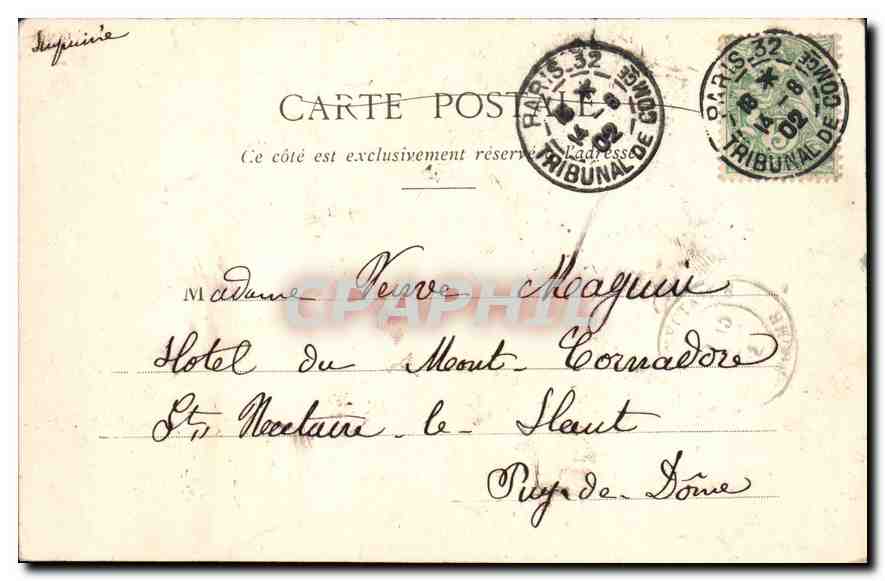 Imprimé
CARTE POSTALE
Ce côté est exclusivement réservé à l'adresse
PARIS_32
18 * 14 -8 02
TRIBUNAL DE COMCE
PARIS_32
18 * 14 -8 02
TRIBUNAL DE COMCE
Madame Veuve Maguin
Hotel du Mont-Cornadore
St, Nectaire-le-Haut
Puy-de-Dôme
CPAPHIL